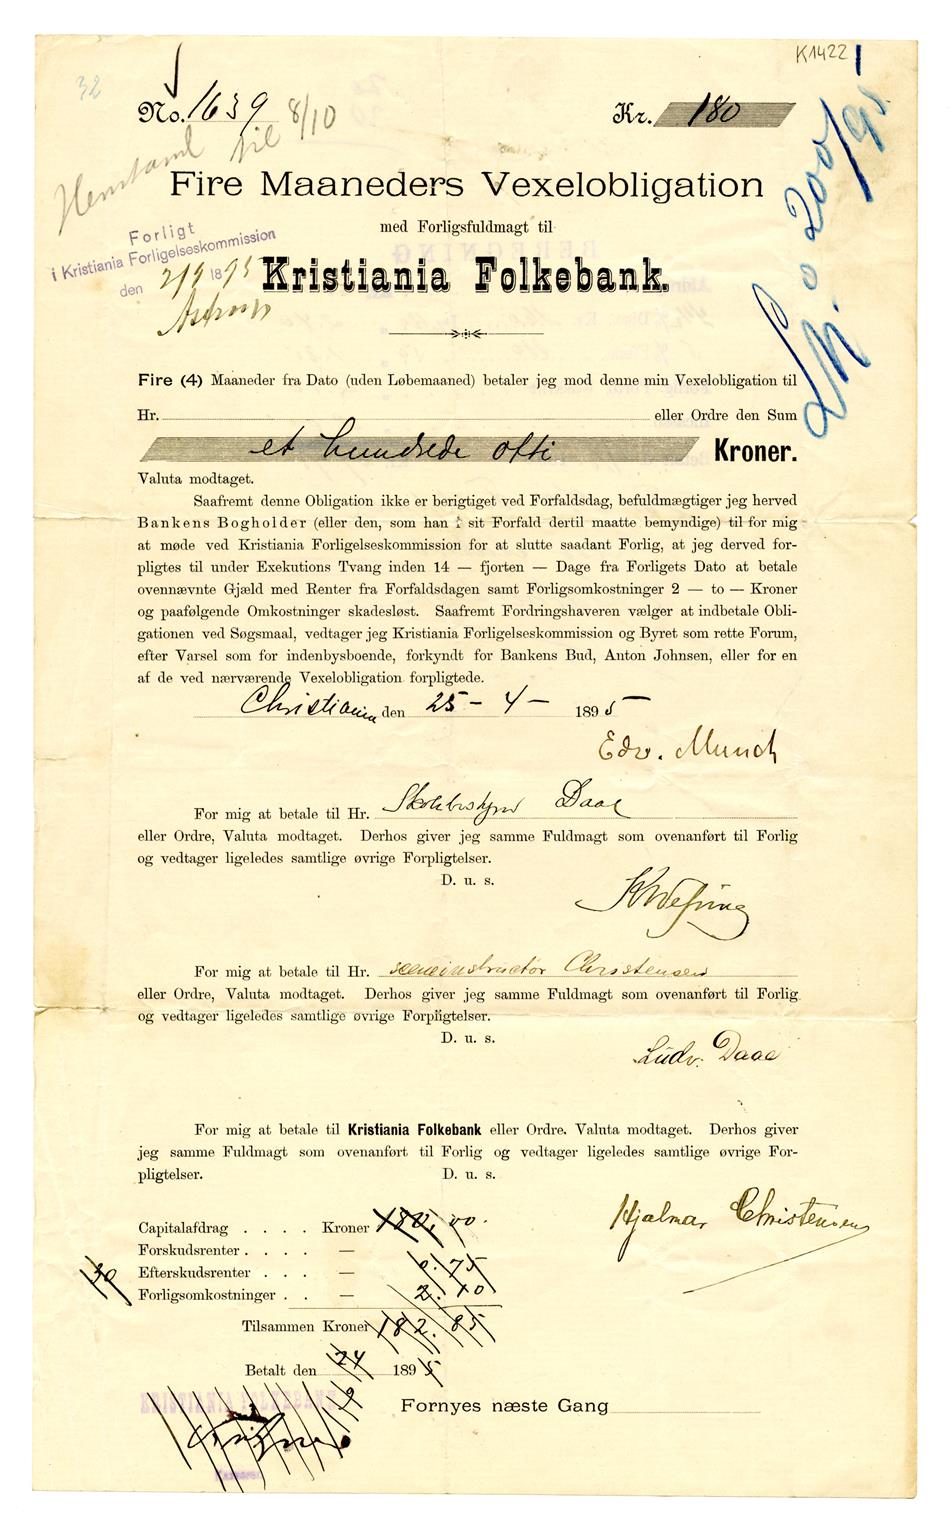 K1422
32
No. 1639
Kr. 180
8/10
Henstand til
Fire Maaneders Vexelobligation
med Forligsfuldmagt til
Forligt
i Kristiania Forligelseskommission
den 2/9 1895
Kristiania Folkebank.
Fire (4) Maaneder fra Dato (uden Løbemaaned) betaler jeg mod denne min Vexelobligation til
Hr. eller Ordre den Sum
et hundrede otti Kroner.
Valuta modtaget.
Saafremt denne Obligation ikke er berigtiget ved Forfaldsdag, befuldmægtiger jeg herved
Bankens Bogholder (eller den, som han i sit Forfald dertil maatte bemyndige) til for mig
at møde ved Kristiania Forligelseskommission for at slutte saadant Forlig, at jeg derved for-
pligtes til under Exekutions Tvang inden 14 — fjorten — Dage fra Forligets Dato at betale
ovennævnte Gjæld med Renter fra Forfaldsdagen samt Forligsomkostninger 2 — to — Kroner
og paafølgende Omkostninger skadesløst. Saafremt Fordringshaveren vælger at indbetale Obli-
gationen ved Søgsmaal, vedtager jeg Kristiania Forligelseskommission og Byret som rette Forum,
efter Varsel som for indenbysboende, forkyndt for Bankens Bud, Anton Johnsen, eller for en
af de ved nærværende Vexelobligation forpligtede.
Christiania den 25 - 4 - 1895
Edv. Munch
For mig at betale til Hr. Skolebestyrer Daae
eller Ordre, Valuta modtaget. Derhos giver jeg samme Fuldmagt som ovenanført til Forlig
og vedtager ligeledes samtlige øvrige Forpligtelser.
D. u. s.
For mig at betale til Hr. sceneinstructør Christensen
eller Ordre, Valuta modtaget. Derhos giver jeg samme Fuldmagt som ovenanført til Forlig
og vedtager ligeledes samtlige øvrige Forpligtelser.
D. u. s.
Ludv. Daae
For mig at betale til Kristiania Folkebank eller Ordre. Valuta modtaget. Derhos giver
jeg samme Fuldmagt som ovenanført til Forlig og vedtager ligeledes samtlige øvrige For-
pligtelser. D. u. s.
Hjalmar Christensen
Capitalafdrag . . . . Kroner 180,00.
Forskudsrenter . . . . —
30 Efterskudsrenter . . . — 0.75
Forligsomkostninger . . — 2.10
Tilsammen Kroner 182.85
Betalt den 24/9 1895
Fornyes næste Gang